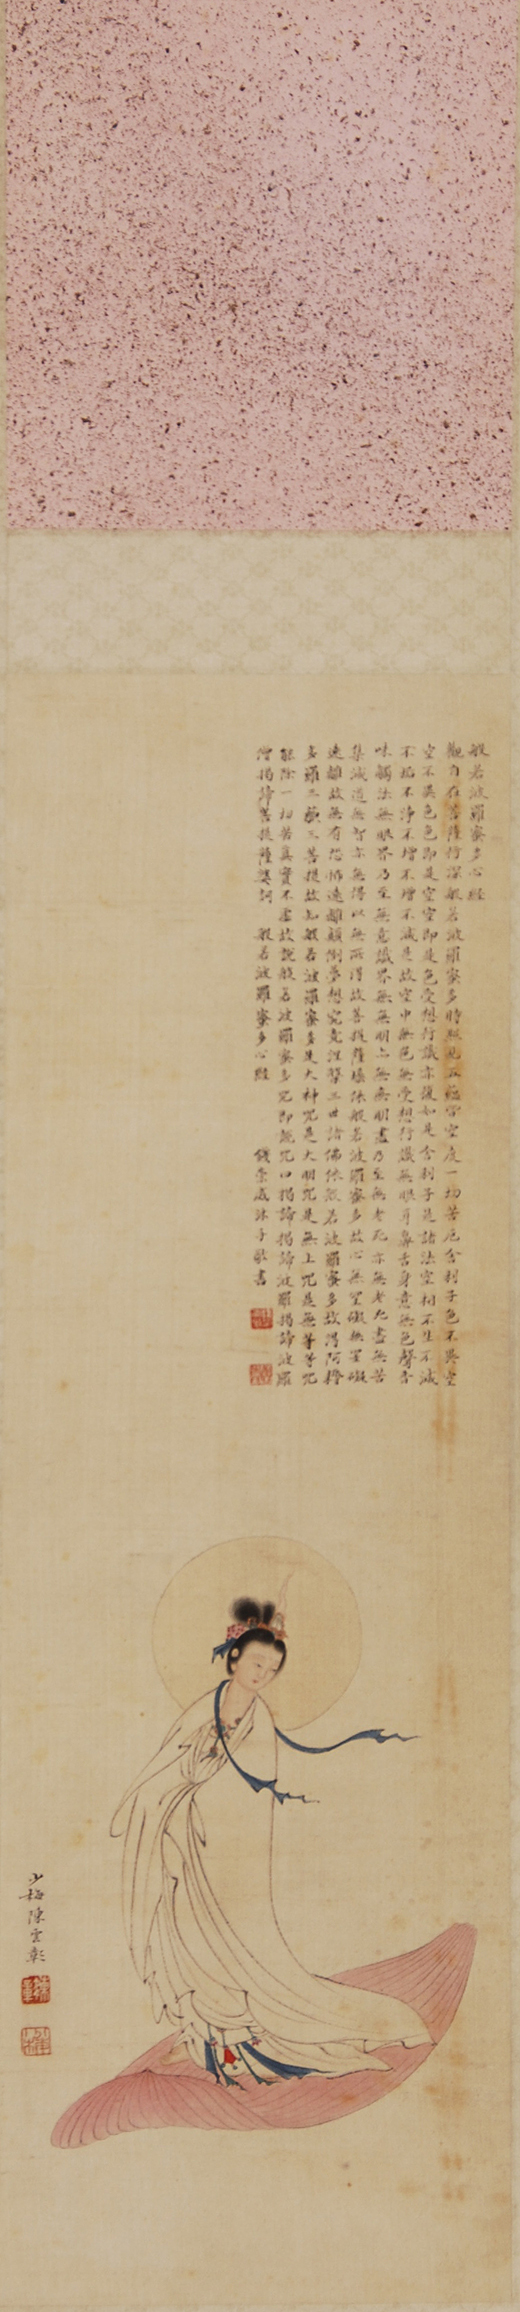 般若波羅蜜多心經
觀自在菩薩行深般若波羅蜜多時照見五蘊皆空度一切苦厄舍利子色不異空
空不異色色即是空空即是色受想行識亦復如是舍利子是諸法空相不生不滅
不垢不淨不增不增不減是故空中無色無受想行識無眼耳鼻舌身意無色聲香
味觸法無眼界乃至無意識界無無明亦無無明盡乃至無老死亦無老死盡無苦
集滅道無智亦無得以無所得故菩提薩埵依般若波羅蜜多故心無罣礙無罣礙
遠離故無有恐怖遠離顛倒夢想究竟涅槃三世諸佛依般若波羅蜜多故得阿耨
多羅三藐三菩提故知般若波羅蜜多是大神咒是大明咒是無上咒是無等等咒
能除一切苦真實不虛故說般若波羅蜜多咒即說咒曰揭諦揭諦波羅揭諦波羅
僧揭諦菩提薩婆訶 般若波羅蜜多心經 錢崇威沐手敬書
少梅陳雲彰